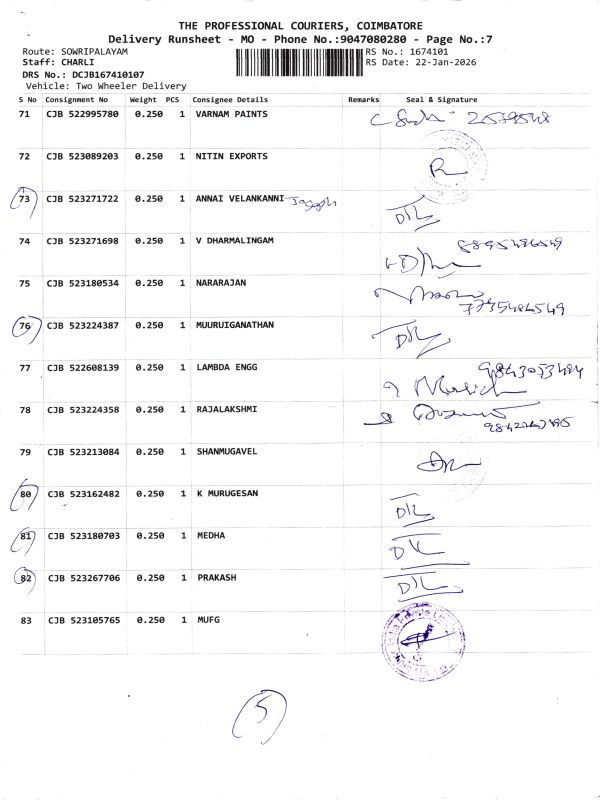 THE PROFESSIONAL COURIERS, COIMBATORE
Delivery Runsheet - MO - Phone No.:9047080280 - Page No.:7
Route: SOWRIPALAYAM RS No.: 1674101
Staff: CHARLI RS Date: 22-Jan-2026
DRS No.: DCJB167410107
Vehicle: Two Wheeler Delivery
S No Consignment No Weight PCS Consignee Details Remarks Seal & Signature
71 CJB 522995780 0.250 1 VARNAM PAINTS
72 CJB 523089203 0.250 1 NITIN EXPORTS
73 CJB 523271722 0.250 1 ANNAI VELANKANNI Joseph
74 CJB 523271698 0.250 1 V DHARMALINGAM
75 CJB 523180534 0.250 1 NARARAJAN
76 CJB 523224387 0.250 1 MUURUIGANATHAN
77 CJB 522608139 0.250 1 LAMBDA ENGG
78 CJB 523224358 0.250 1 RAJALAKSHMI
79 CJB 523213084 0.250 1 SHANMUGAVEL
80 CJB 523162482 0.250 1 K MURUGESAN
81 CJB 523180703 0.250 1 MEDHA
82 CJB 523267706 0.250 1 PRAKASH
83 CJB 523105765 0.250 1 MUFG
5